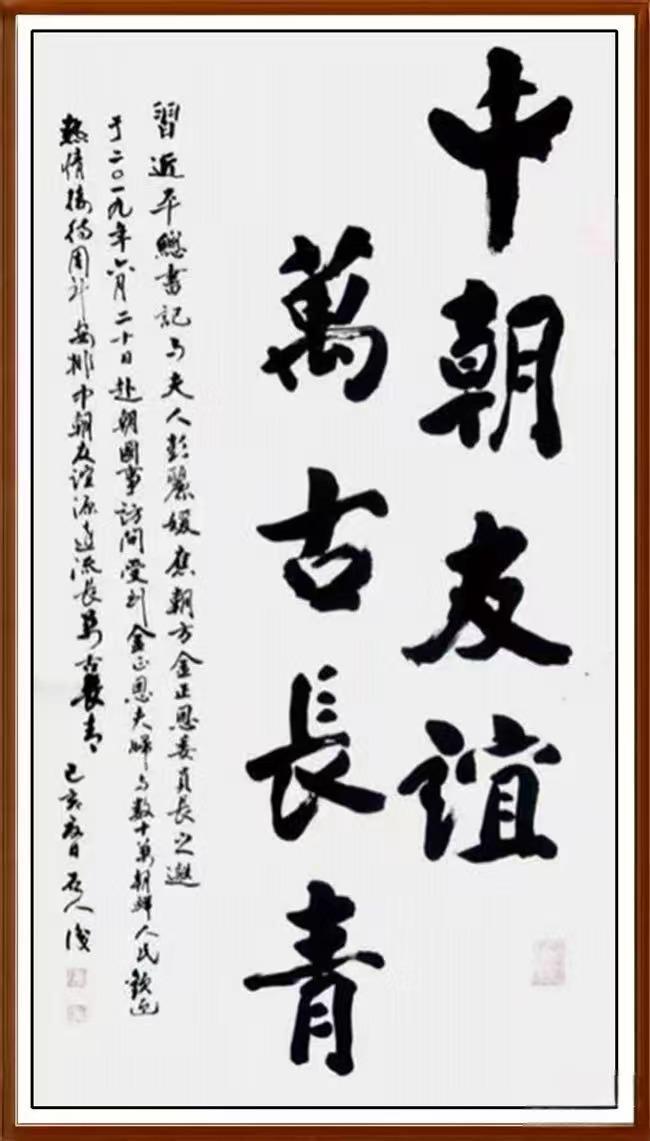 中朝友誼
萬古長青
習近平總書記与夫人彭麗媛應朝方金正恩委員長之邀
于二〇一九年六月二十日赴朝國事訪問受到金正恩夫婦与数十萬朝鮮人民歓迎
熱情接待周詳安排中朝友誼源遠流長萬古長青
己亥夏日石人